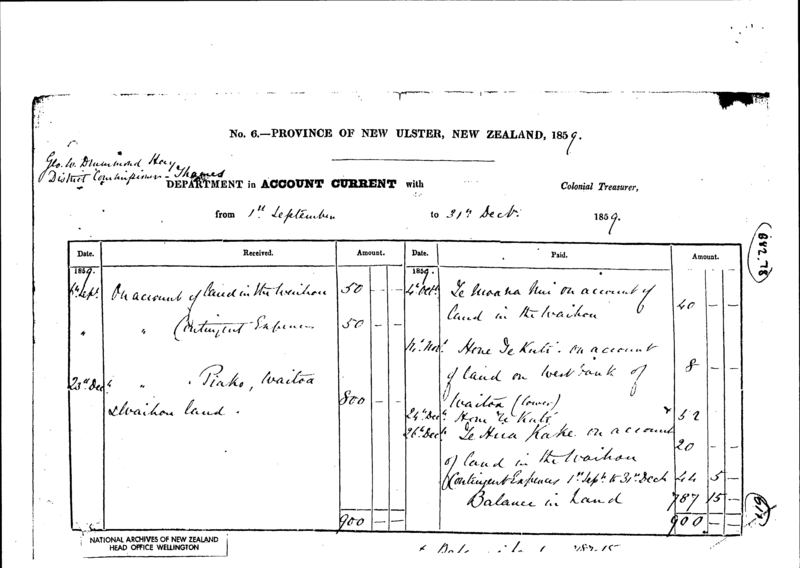 No. 6.—PROVINCE OF NEW ULSTER, NEW ZEALAND, 1859.
Geo. W. Drummond Hay
District Commissioner - Thames
DEPARTMENT in ACCOUNT CURRENT with Colonial Treasurer,
from 1st September to 31st Decr. 1859.
Date. Received. Amount. Date. Paid. Amount.
1859. 1859.
6th Sept. On account of land in the Waihou 50 — — 4th Octr. Te Moana Nui on account of
land in the Waihou 40 — —
" " Contingent Expenses 50 — —
Novr. Hone Te Kuti on account
of land on West bank of 8 — —
Waitoa (lower)
23rd Dec " " Piako, Waitoa
& Waihou land. 800 — —
24th Decr. Hone Te Kuti
26th Decr. Te Hua Kake on account
of land in the Waihou 20 — —
Contingent Expenses 1st Sept. to 31st Decr. 44 5 —
Balance in hand 787 15 —
900 — — 900 — —
NATIONAL ARCHIVES OF NEW ZEALAND
HEAD OFFICE WELLINGTON